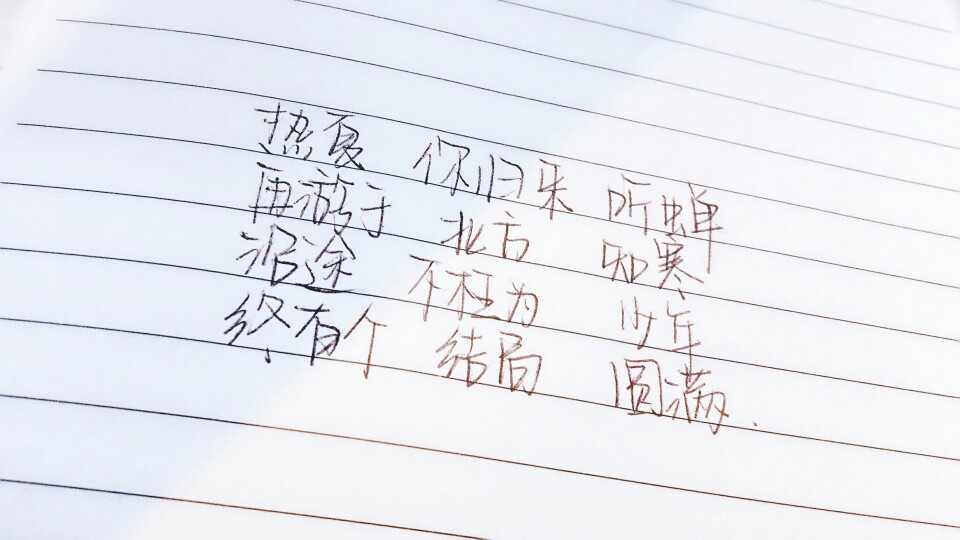 热夏 你归来 听蝉
再游于 北方 知寒
沿途 不枉为 少年
终有个 结局 圆满.